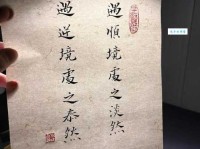 遇順境處之淡然
遇逆境處之泰然